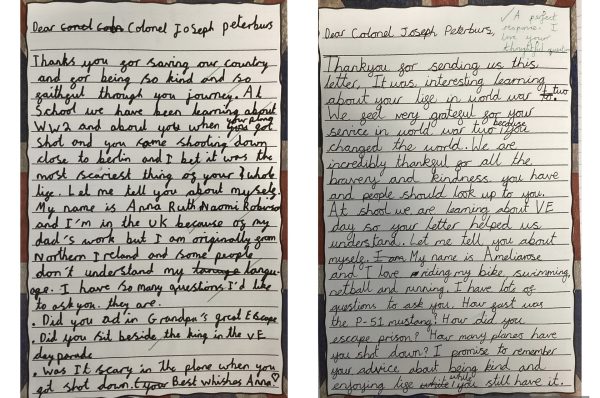 Dear Colonel Joseph Peterburs
Thanks you for saving our country
and for being so kind and so
faithful through you journey. At
School we have been learning about
WW2 and about you when your plane got
shot and you some shooting down
close to berlin and I bet it was the
most scariest thing of your whole
life. Let me tell you about my self.
My name is Anna Ruth Naomi Robinson
and I'm in the UK because of my
dad's work but I am originally from
Northern Ireland and some people
don't understand my langu-
age. I have so many questions I'd like
to ask you. they are.
. Did you aid in Grandpa's great Escape
. Did you sit beside the king in the VE
day parade
. Was it scary in the plane when you
got shot down. Best whishes Anna♡
Dear Colonel Joseph Peterburs,
✓ A perfect
response. I
love your
thoughtful questions
Thankyou for sending us this
letter. It was interesting learning
about your life in world war two
We feel very grateful for your
service in world war two because you
changed the world. We are
incredibly thankful for all the
bravery and kindness you have
and people should look up to you.
At shool we are learning about VE
day so your letter helped us
understand. Let me tell you about
myself. I am My name is Ameliarose
and I love riding my bike, swimming,
netball and running. I have lots of
questions to ask you. How fast was
the P-51 mustang? How did you
escape prison? How many planes have
you shot down? I promise to remember
your advice about being kind and
enjoying life while you still have it.